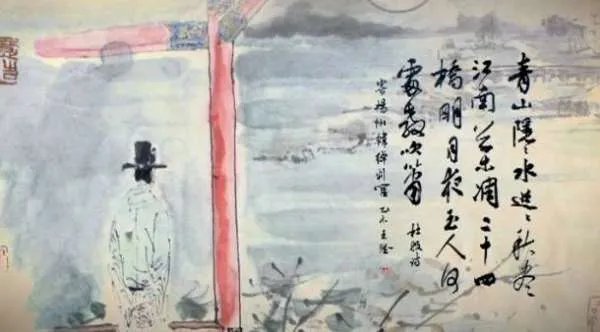 青山隱〻水迢〻秋尽
江南草木凋二十四
橋明月夜玉人何
處教吹簫 杜牧诗
寄揚州韓綽判官 乙未